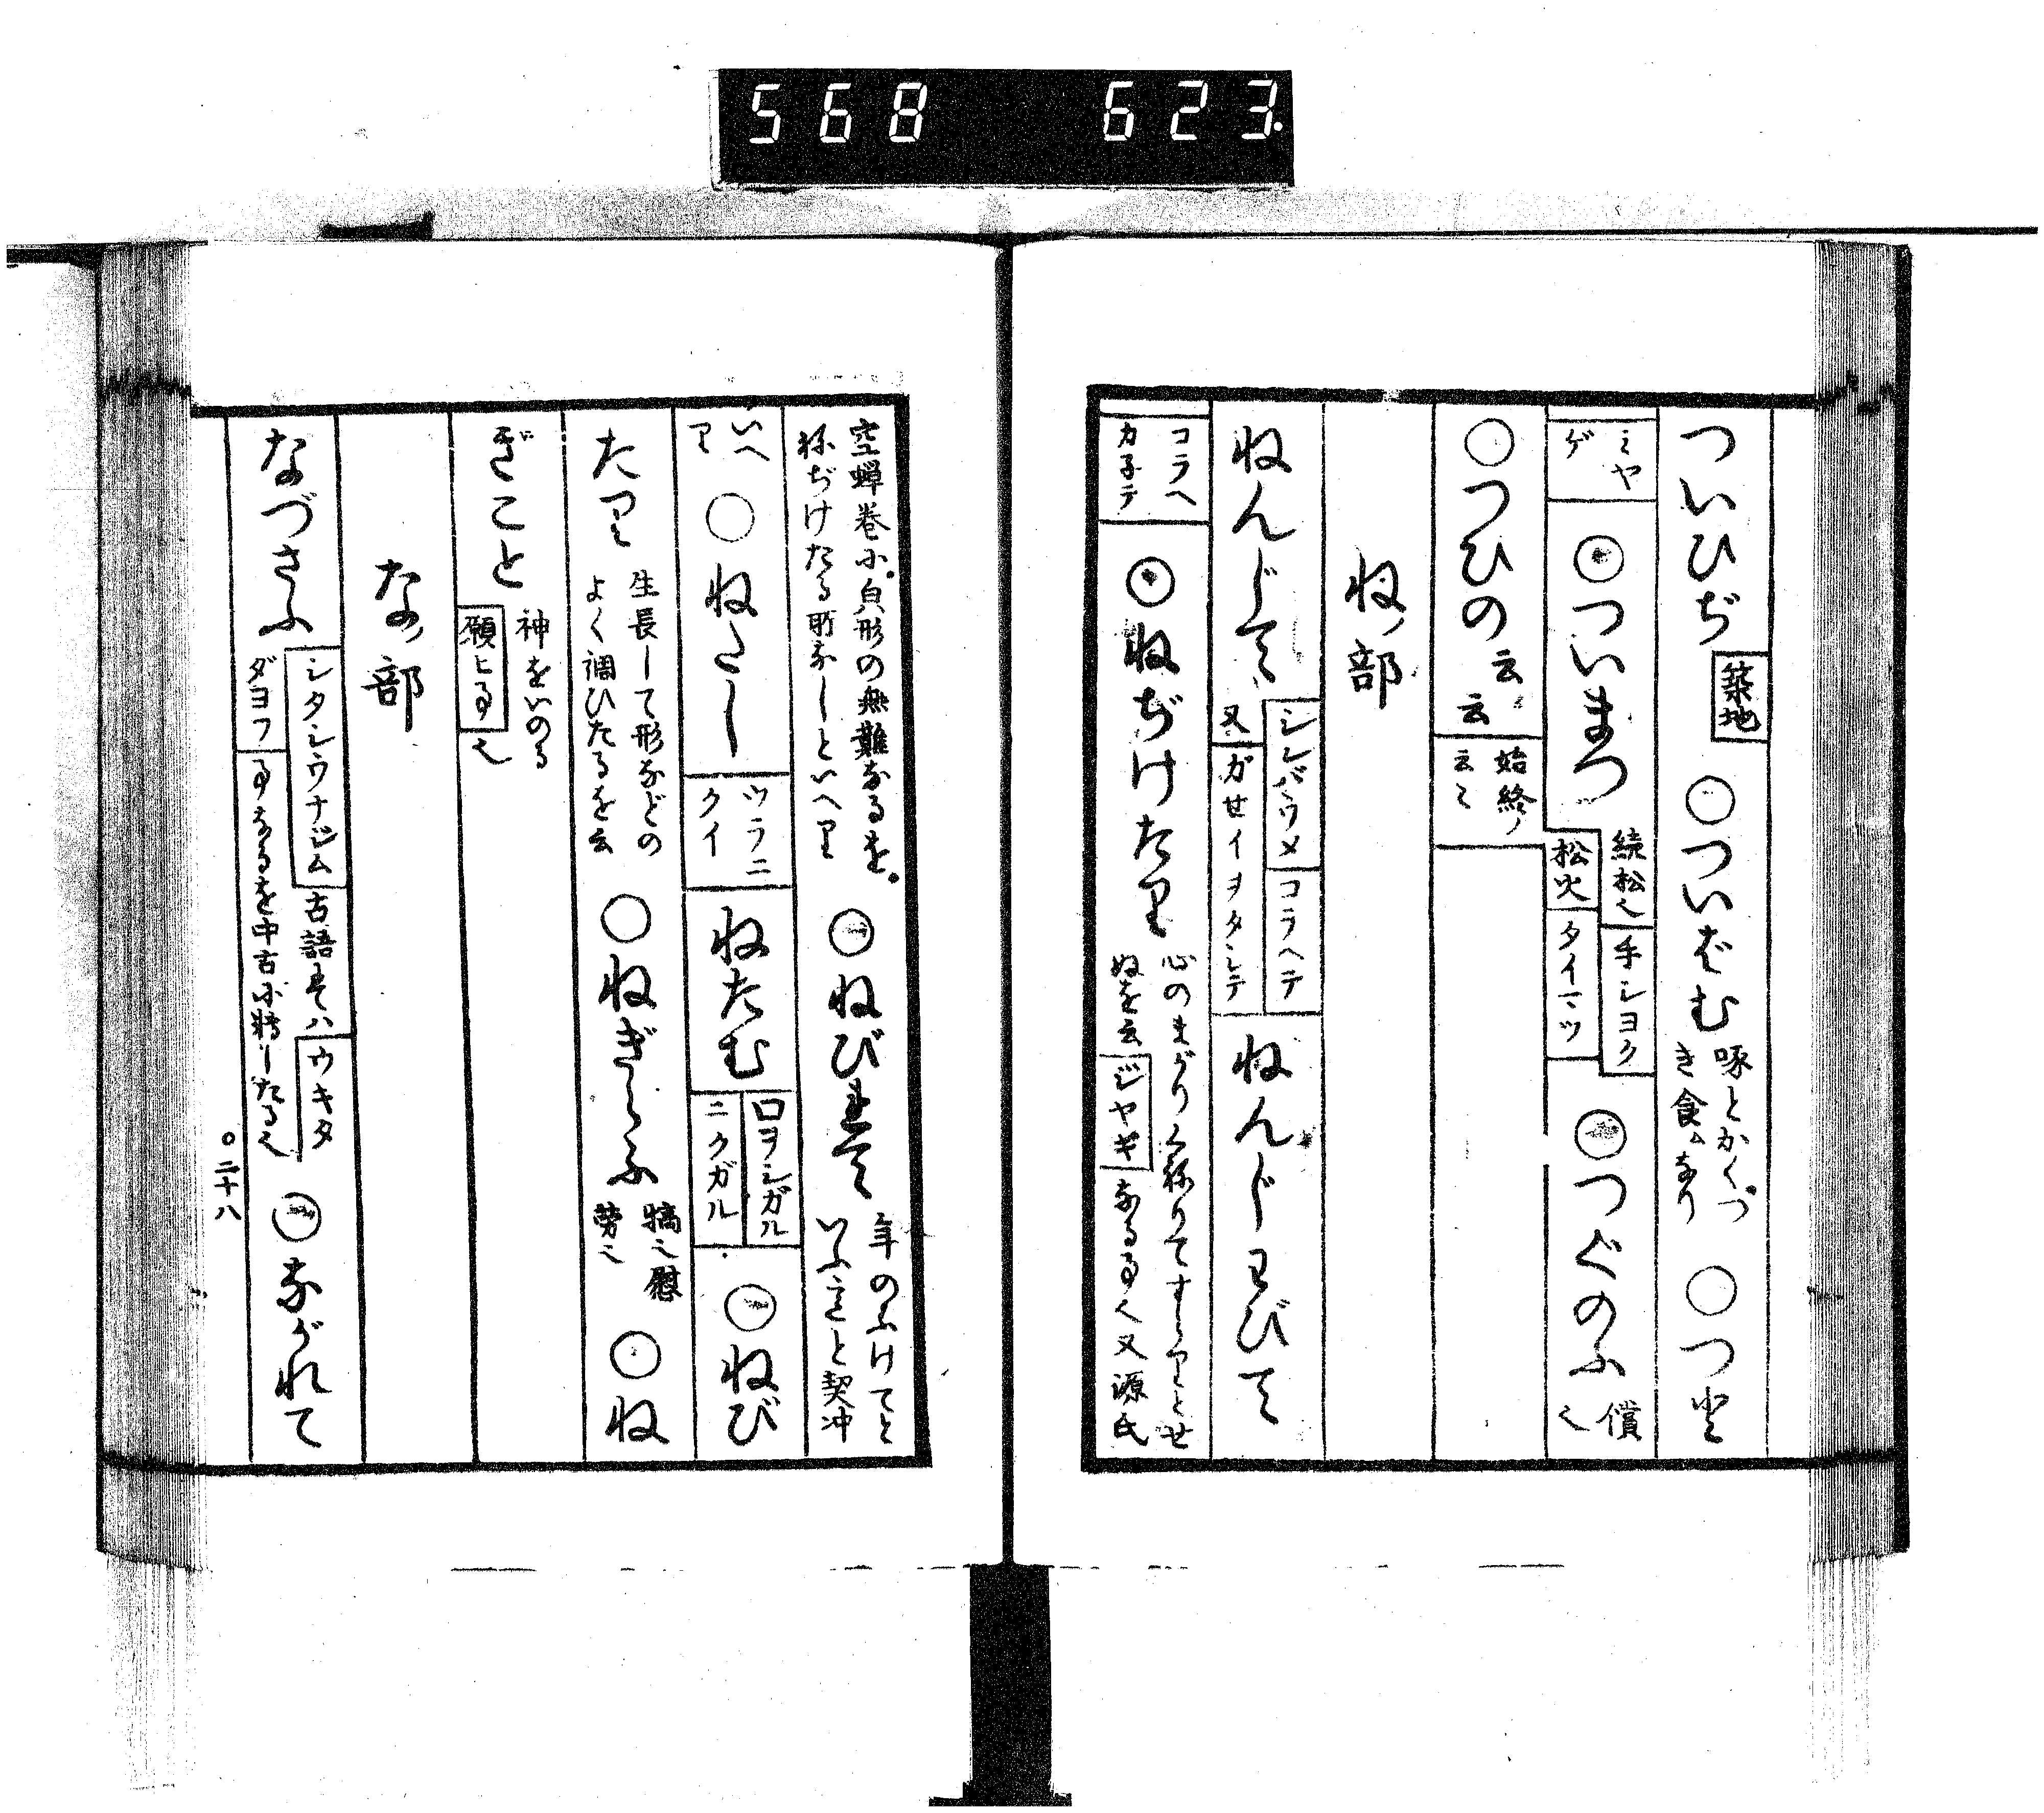 568 623.
ついひぢ 築地 ○ついばむ 啄とかく。つき食ムなり ○つと
ミヤゲ ◉ついまつ 続松也 手シヨク 松火 タイマツ ◉つぐのふ 償也
○つひの云云 始終ノ云々
ねノ部
ねんじて シンバウメ コラヘテ 又 ガセイヲタシテ ねんじわびて
コラヘカ子テ ◉ねぢけたり 心のまがりくねりてすらりとせぬを云 ジヤキ なる事也又源氏
空蝉巻に。貞形の無難なるを。ねぢけたる所なしといへり ◉ねびれて 年のふけてといふことと契冲
いへり ○ねたし ツラニクイ ねたむ 口ヲシガル ニクガル ◉ねび
たり 生長して形などのよく調ひたるを云 ○ねぎらふ 犒也慰労也 ○ね
ぎこと 神をいのる 願ヒ事 也
なノ部
なづさふ シタシウナジム 古語にてハ ウキタダヨフ 事なるを中古に転したる也 ◉ながれて
○二十八